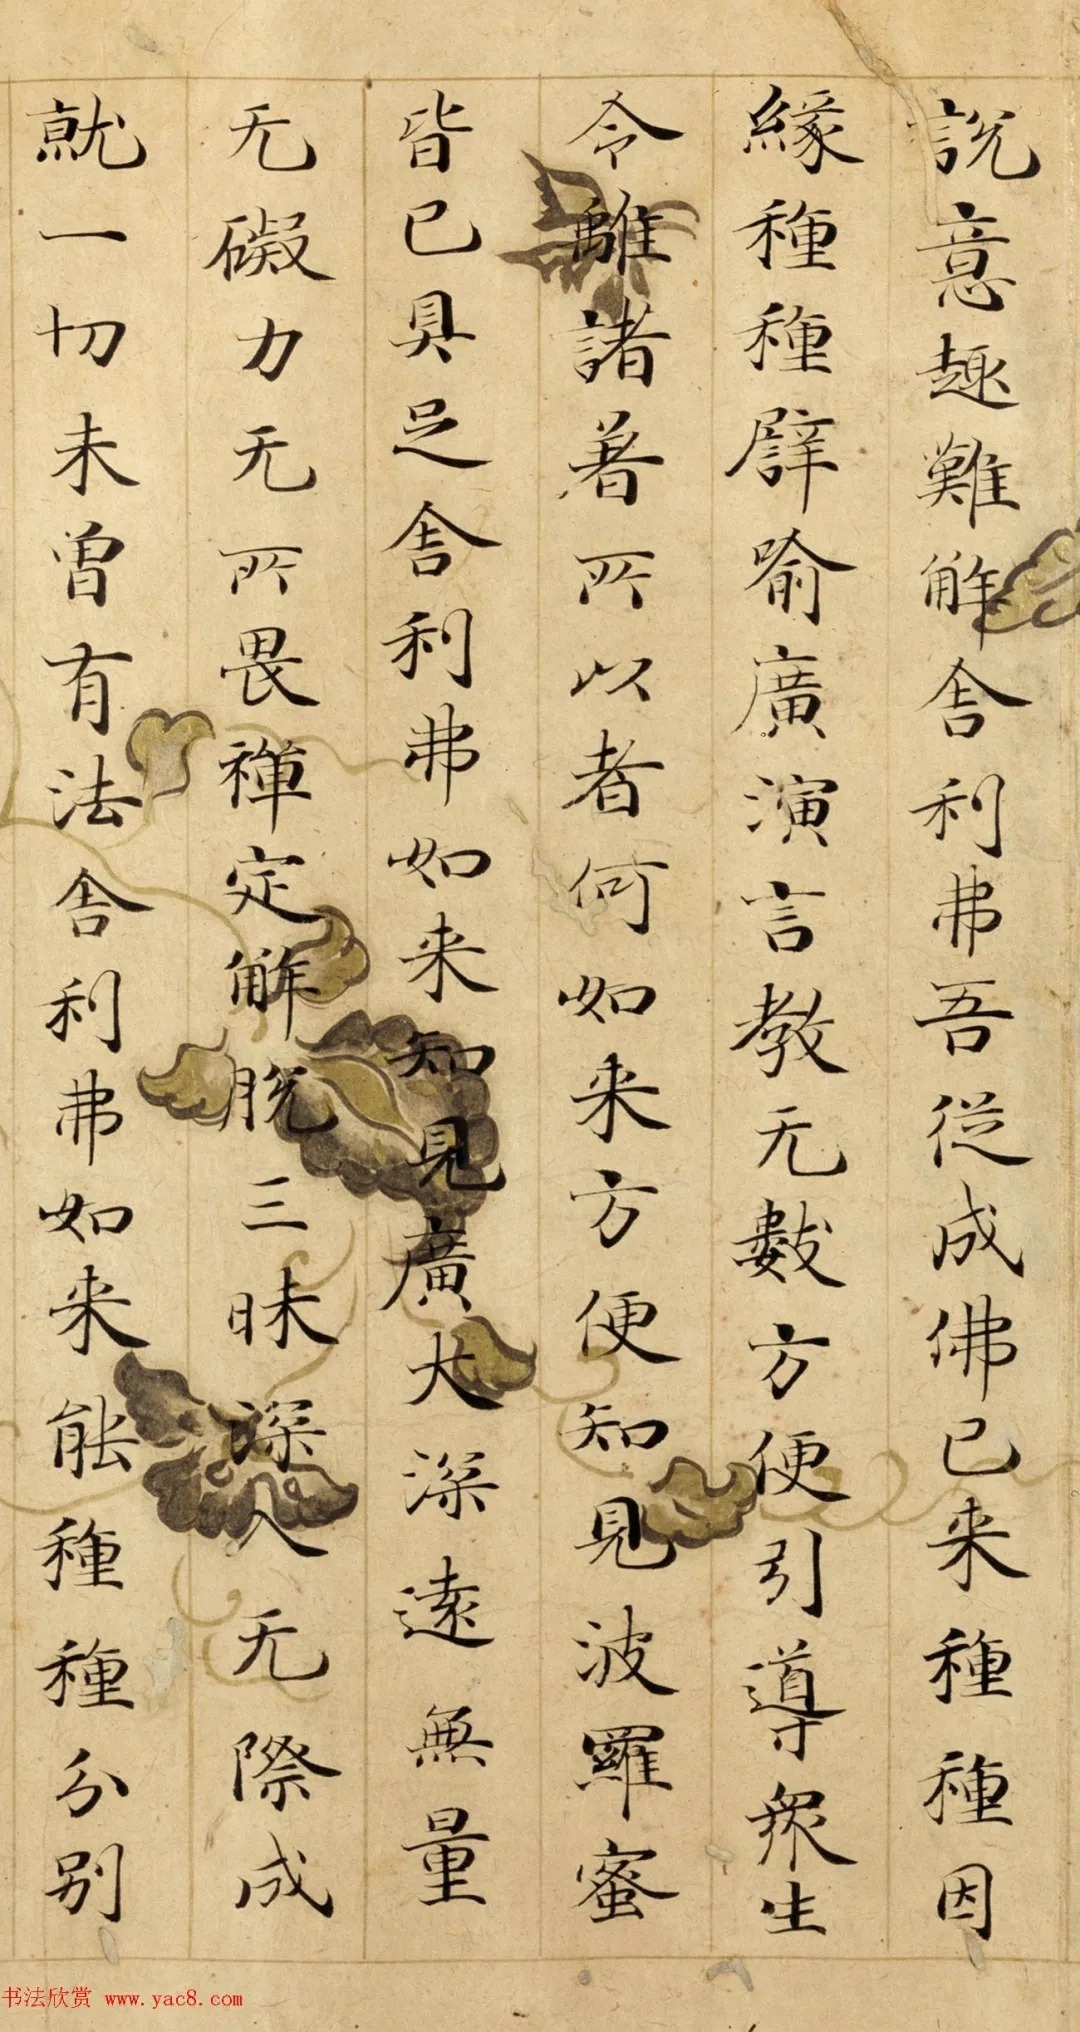 說意趣難解舍利弗吾從成佛已来種種因
緣種種譬喻廣演言教无數方便引導衆生
令離諸著所以者何如来方便知見波羅蜜
皆已具足舍利弗如来知見廣大深遠無量
无礙力无所畏禪定解脫三昧深入无際成
就一切未曾有法舍利弗如来能種種分别
书法欣赏 www.yac8.com